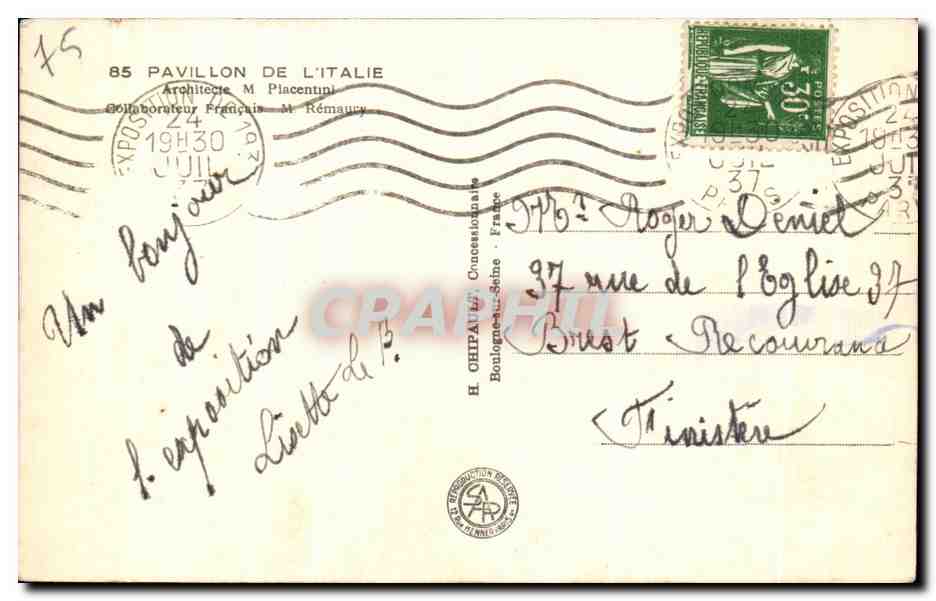 75
85 PAVILLON DE L'ITALIE
Architecte M Piacentini
Collaborateur Français M. Rémaury
EXPOSITION
24
19H30
JUIL
37
REPUBLIQUE FRANÇAISE
POSTES
30
JUIL
37
PARIS
EXPOSITION
24
19H3
JUIL
37
Un bonjour
de
l'exposition
Lisette Le B.
H. CHIPAULT, Concessionnaire
Boulogne-sur-Seine - France
Mr Roger Déniel
37 rue de l'Eglise 37
Brest Recouvrance
Finistère
CPAPHIL
REPRODUCTION RESERVEE
SAPR
12 Rue HENNER PARIS